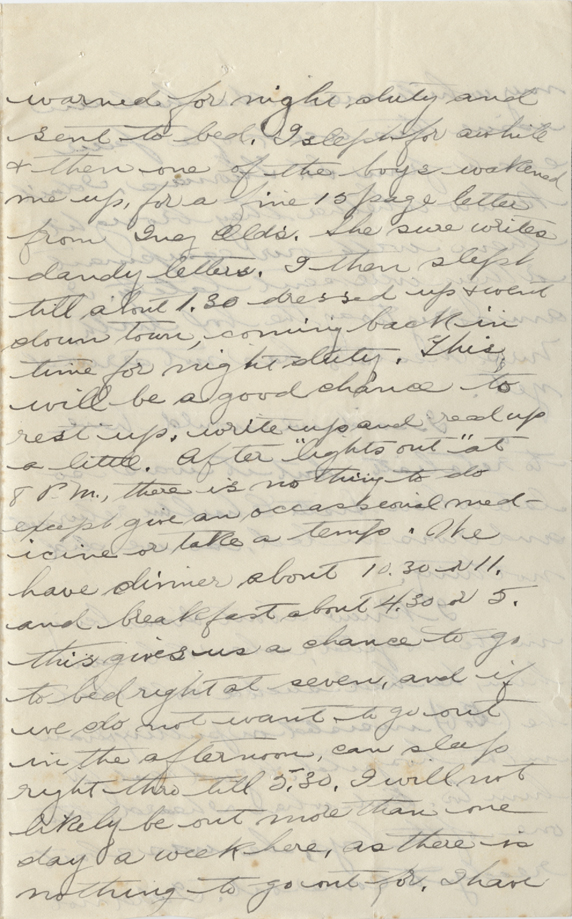 warned for night duty and
sent to bed. I slept for awhile
& then one of the boys wakened
me up, for a fine 15 page letter
from Inez Olds. She sure writes
dandy letters. I then slept
till about 1.30 dressed up & went
down town, coming back in
time for night duty. This
will be a good chance to
rest up, write up and read up
a little. After "lights out" at
8 P.M., there is nothing to do
except give an occassional med-
icine or take a temp. We
have dinner about 10.30 or 11.
and breakfast about 4.30 or 5.
this gives us a chance to go
to bed right at seven, and if
we do not want to go out
in the afternoon, can sleep
right thro till 5.30. I will not
likely be out more than one
day a week here, as there is
nothing to go out for. I have